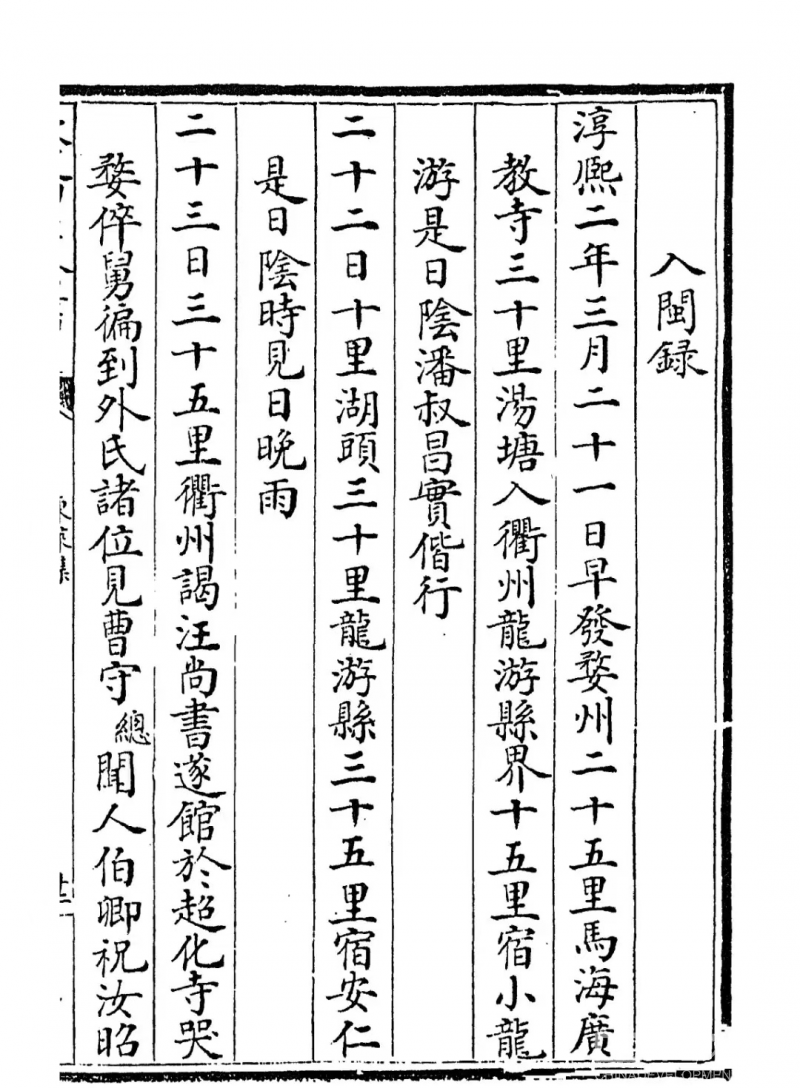 入閩録
淳熙二年三月二十一日早發婺州二十五里馬海廣
教寺三十里湯塘入衢州龍游縣界十五里宿小龍
游是日陰潘叔昌實偕行
二十二日十里湖頭三十里龍游縣三十五里宿安仁
是日陰時見日晚雨
二十三日三十五里衢州謁汪尚書遂館於超化寺哭
婺倅舅徧到外氏諸位見曹守總聞人伯卿祝汝昭